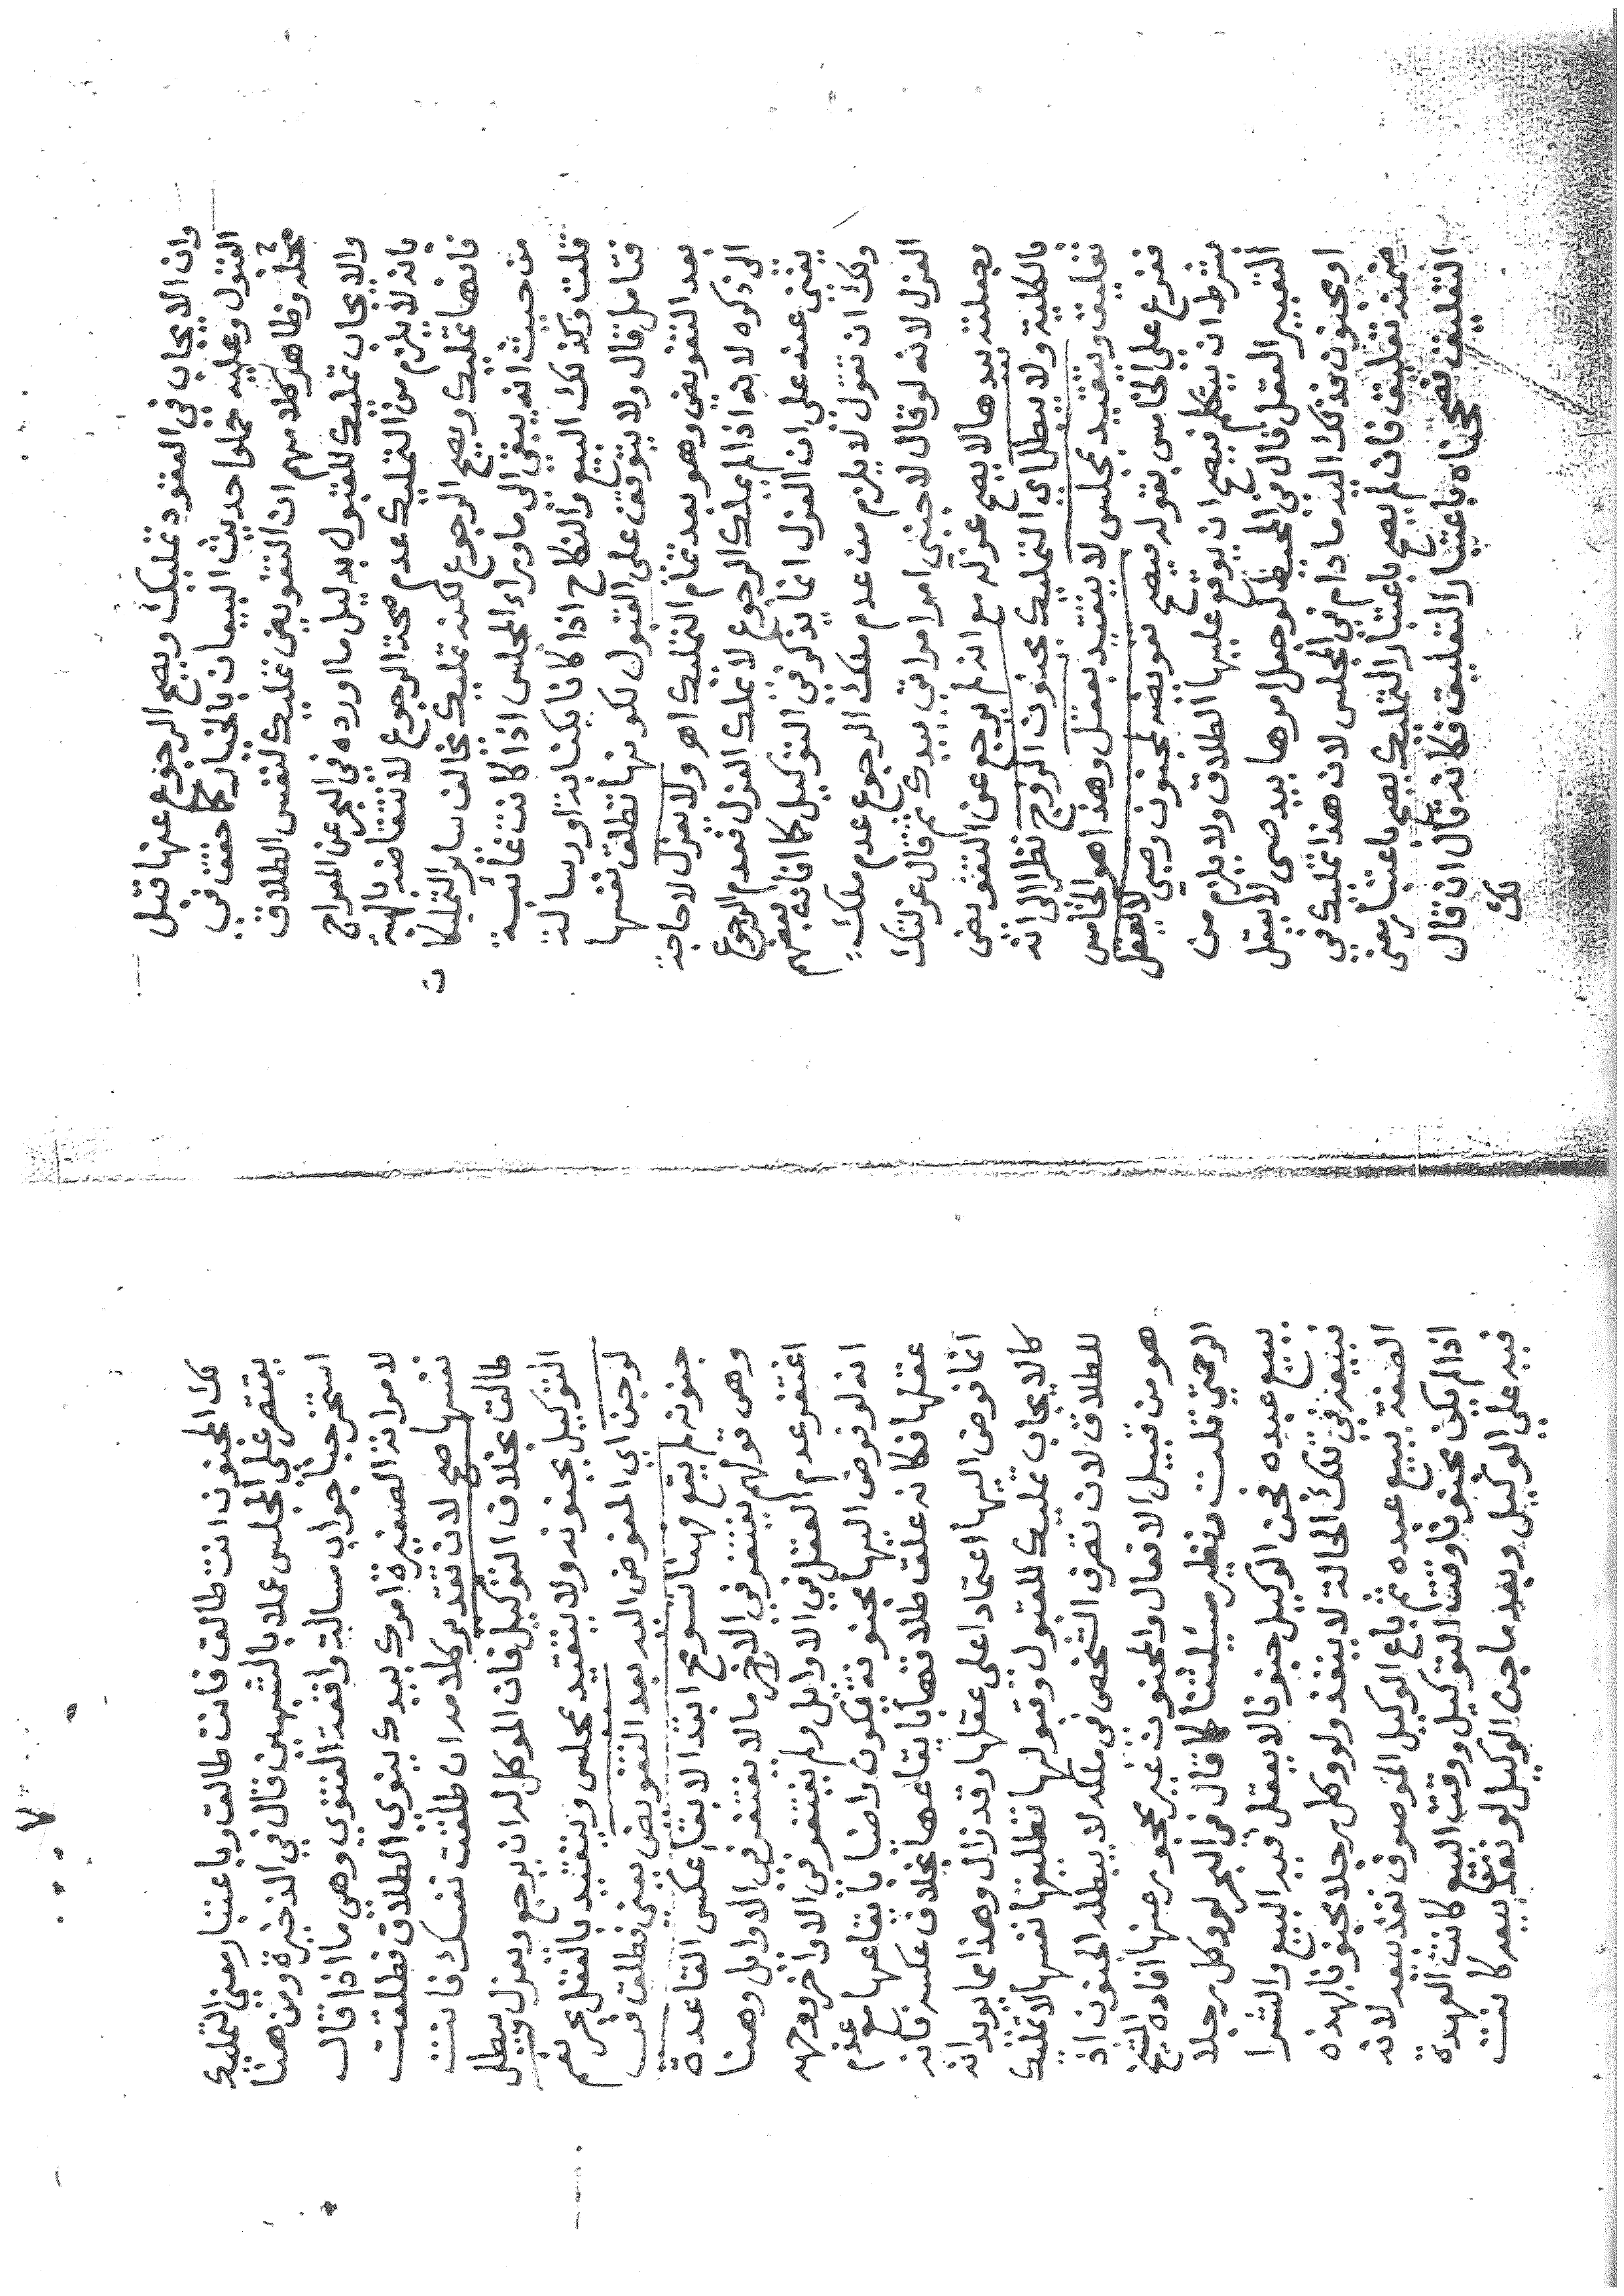 وان الايجاب في العقود تمليك ويصح الرجوع عنها قبل
القبول وعليه حملوا حديث البيعان بالخيار كما حقق في
محله وظاهر كلامهم ان التفويض تمليك لنفس الطلاق
والايجاب تمليك للقبول بدليل ما اورده في البحر عن المعراج
بانه لا يلزم من التمليك عدم صحة الرجوع لانتقاضه بالهبة
فانها تمليك ويصح الرجوع لكنه تمليك يخالف سائر التمليكات
من حيث انه يبقى الى ما وراء المجلس اذا كانت غائبة
قلت وكذلك البيع والنكاح اذا كانا بكتابة او رسالة
فتامل قال ولا يتوقف على القبول لكونها تطلق نفسها
بعد التفويض وهو بعد تمام التمليك اهـ ولا يعزل لا حاجة
الى ذكره لانه اذا لم يملك الرجوع لا يملك العزل فعدم الرجوع
يغني عنه على ان العزل انما يذكر في التوكيل كما افاده بعضهم
ولك ان تقول لا يلزم من عدم ملك الرجوع عدم ملك
العزل لانه لو قال لاجنبي امر امراتي بيدك ثم قال عزلتك
وجعلته بيدها لا يصح عزله مع انه لم يرجع عن التفويض
بالكلية ولا يبطل اي التمليك بجنون الزوج نظرا الى انه
تعليق ويتقيد بمجلس لا يتقيد بعقل وهذا هو الخامس
ففرع على الخامس بقوله فيصح تفويضه لمجنون وصبي لا يعقل
بشرط ان يتكلم فيصح ان يوقع عليها الطلاق ولا يلزم من
التعبير العقل قال في المحيط لو جعل امرها بيد صبي لا يعقل
او مجنون فذلك اليه ما دام في المجلس لان هذا تمليك في
ضمنه تعليق فان لم يصح باعتبار التمليك يصح باعتبار معنى
التعليق فصححناه باعتبار التعليق فكانه قال ان قال
لك
لك المجنون انت طالق فانت طالق وباعتبار معنى التمليك
يقتصر على المجلس عملا بالشبهين قال في الذخيرة ومن هنا
استخرجنا جواب مسالة واقعة الفتوى وهي ما اذا قال
لامراته الصغيرة امرك بيدك ينوي الطلاق فطلقت
نفسها صح لان تقدير كلامه ان طلقت نفسك فانت
طالق بخلاف التوكيل فان الموكل له ان يرجع ويعزل ويبطل
التوكيل بجنونه ولا يتقيد بمجلس ويتقيد بالعقل بحر نعم
لو جن اي المفوض اليه بعد التفويض يعني فطلق في
جنونه لم يقع فهنا تسومح ابتدا لا بقا عكس القاعدة
وهي قولهم يغتفر في الاخر ما لا يغتفر في الاوايل وهنا
اغتفر عدم العقل في الاوايل ولم يغتفر في الاواخر ووجهه
انه لو فوض اليها مجنونة فيكون راضيا بايقاعها مع عدم
عقلها فكانه علق طلاقها بايقاعها بخلاف عكسه فانه
انما فوض اليها اعتمادا على عقلها وقد زال وهذا مما يويد انه
كالايجاب تمليك للقبول وقبولها تطليقها نفسها لا تمليك
للطلاق لان تصرف الشخص في ملكه لا يبطله المجنون اذ
هو من قبيل الافعال والمجنون غير محجور عنها افاده الشيخ
الرحمتي قلت ونظير مسئلتنا كما قال في البحر لو وكل رجلا
ببيع عبده فجن الوكيل جنونا لا يعقل فيه البيع والشرا
فبيعه في تلك الحالة لا ينفذ ولو وكل رجلا مجنونا بهذه
الصفة ببيع عبده ثم باع الوكيل الموصوف نفذ بيعه لانه
اذا لم يكن مجنونا وقت التوكيل ووقت البيع كانت العهدة
فيه على الوكيل وبعد ما جن الوكيل لو نفذ بيعه كانت